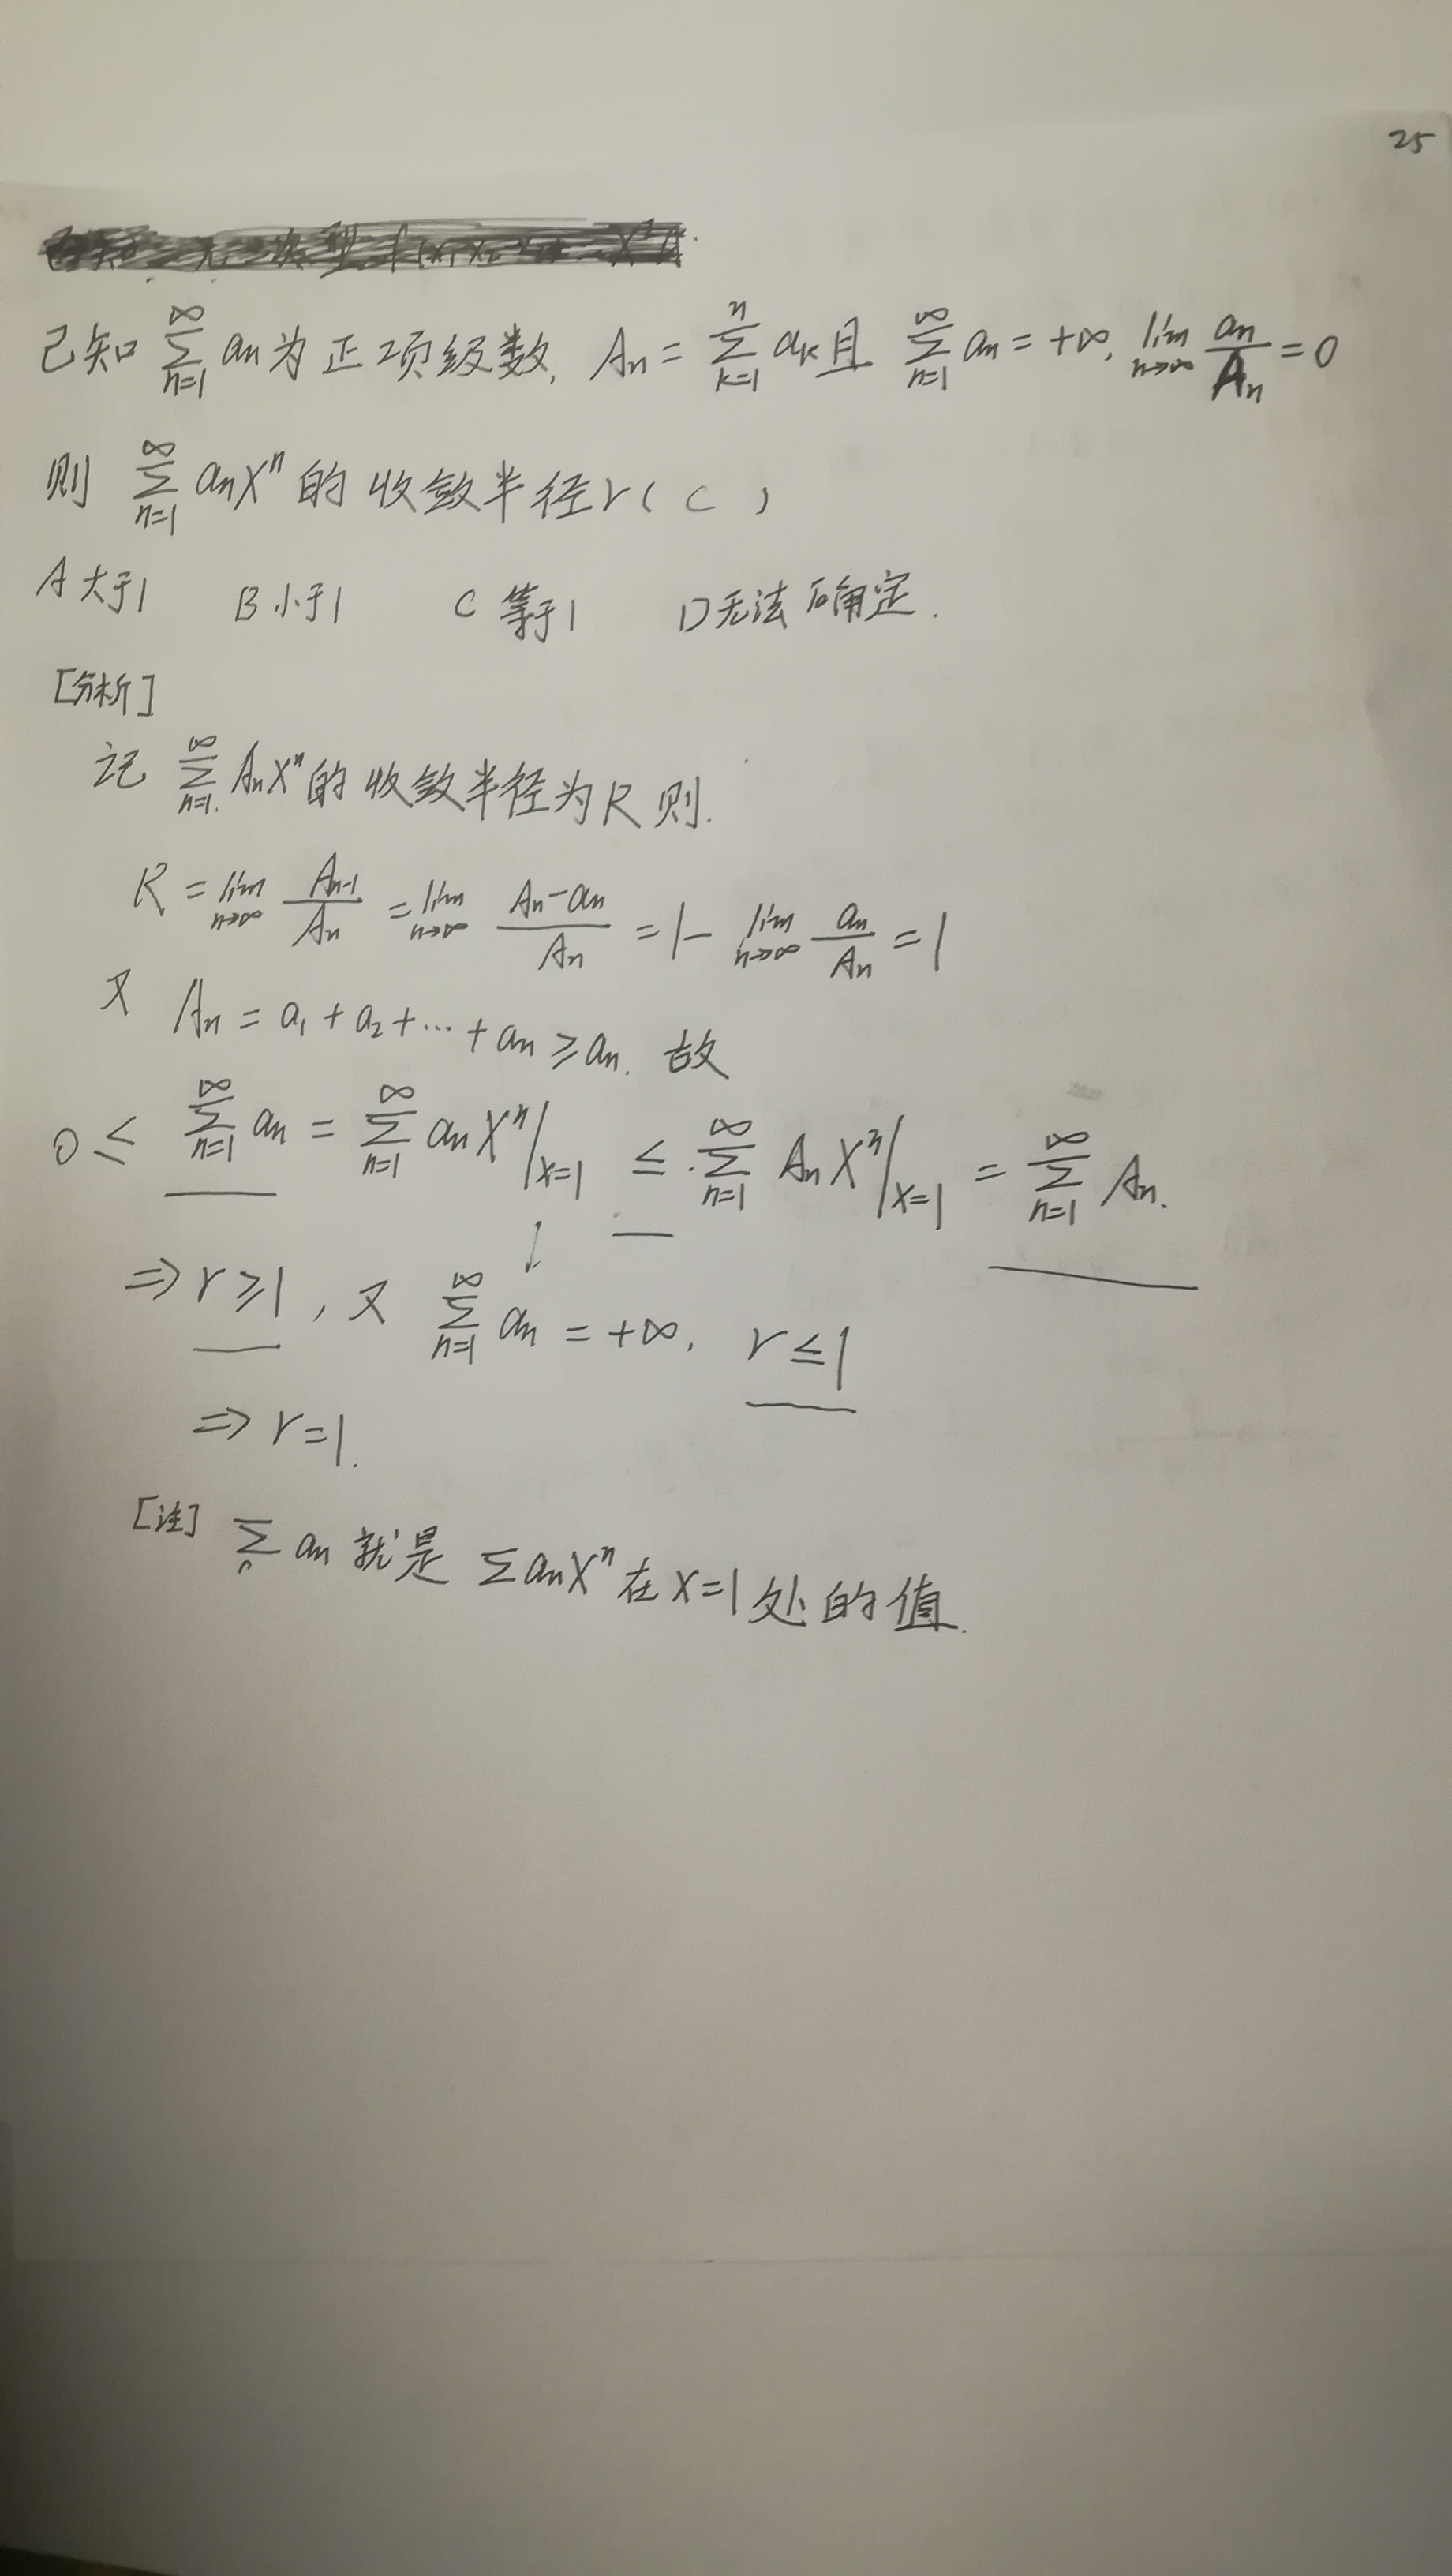 25
已知 ∑_{n=1}^{∞} an 为正项级数, An = ∑_{k=1}^{n} ak 且 ∑_{n=1}^{∞} an = +∞, lim_{n→∞} an/An = 0
则 ∑_{n=1}^{∞} anXⁿ 的收敛半径r( C )
A 大于1 B 小于1 C 等于1 D 无法确定.
[分析]
记 ∑_{n=1}^{∞} AnXⁿ 的收敛半径为R 则.
R = lim_{n→∞} A_{n-1}/An = lim_{n→∞} (An - an)/An = 1 - lim_{n→∞} an/An = 1
又 An = a₁ + a₂ + ⋯ + an ≥ an. 故
0 ≤ ∑_{n=1}^{∞} an = ∑_{n=1}^{∞} anXⁿ|_{x=1} ≤ ∑_{n=1}^{∞} AnXⁿ|_{x=1} = ∑_{n=1}^{∞} An.
⇒ r ≥ 1, 又 ∑_{n=1}^{∞} an = +∞. r ≤ 1
⇒ r = 1.
[注] ∑ an 就是 ∑ anXⁿ 在 x=1 处的值.